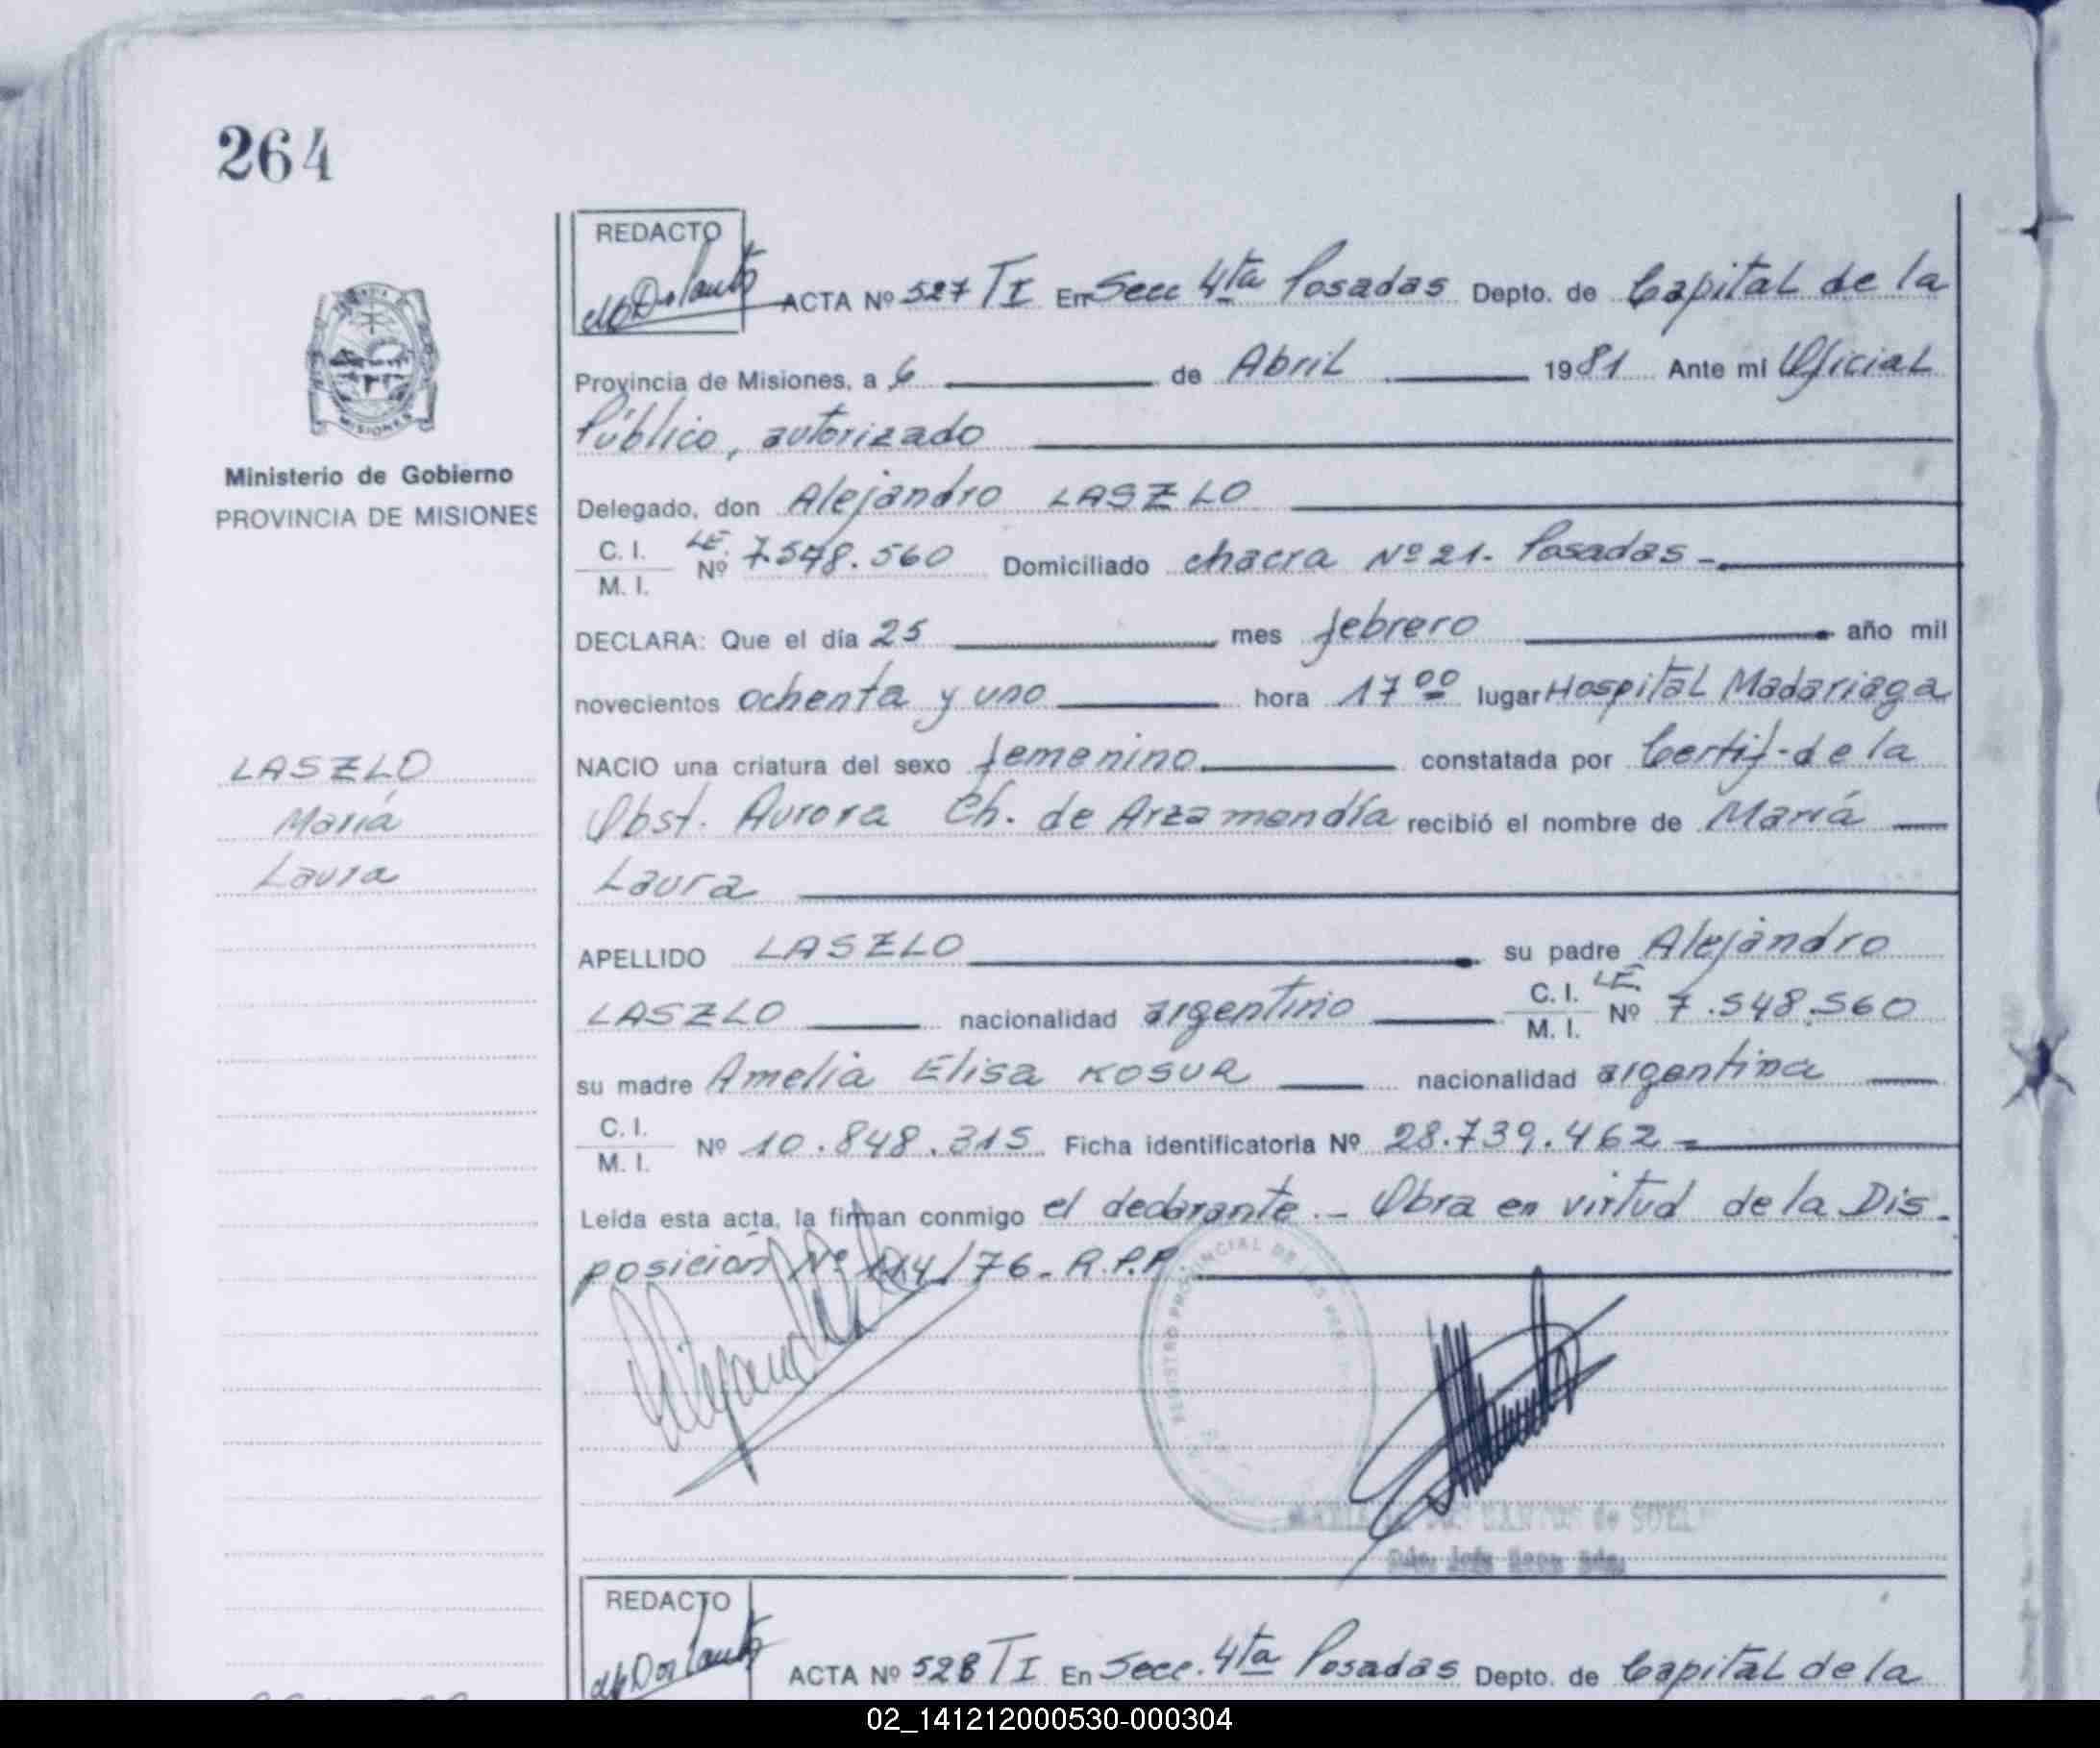 264
REDACTO
ACTA Nº 527 TI En Secc 4ta Posadas Depto. de Capital de la
Provincia de Misiones, a 6 de Abril 1981 Ante mi Oficial
Público, autorizado
Ministerio de Gobierno
PROVINCIA DE MISIONES
Delegado, don Alejandro LASZLO
C. I. M. I. LE. Nº 7.548.560 Domiciliado chacra Nº 21- Posadas-
DECLARA: Que el día 25 mes febrero año mil
novecientos ochenta y uno hora 17 00 lugar Hospital Madariaga
LASZLO
NACIO una criatura del sexo femenino constatada por Certif-de la
María
Obst. Aurora Ch. de Arzamendía recibió el nombre de María
Laura
Laura
APELLIDO LASZLO su padre Alejandro
LASZLO nacionalidad argentino C. I. M. I. LE. Nº 7.548.560
su madre Amelia Elisa KOSUR nacionalidad argentina
C. I. M. I. Nº 10.848.315 Ficha identificatoria Nº 28.739.462-
Leída esta acta, la firman conmigo el declarante.- Obra en virtud de la Dis-
posición Nº 114/76- R.P.P.
REGISTRO PROVINCIAL DE LAS PER
SANTOS de
REDACTO
ACTA Nº 528 TI En Secc. 4ta Posadas Depto. de Capital de la
02_141212000530-000304